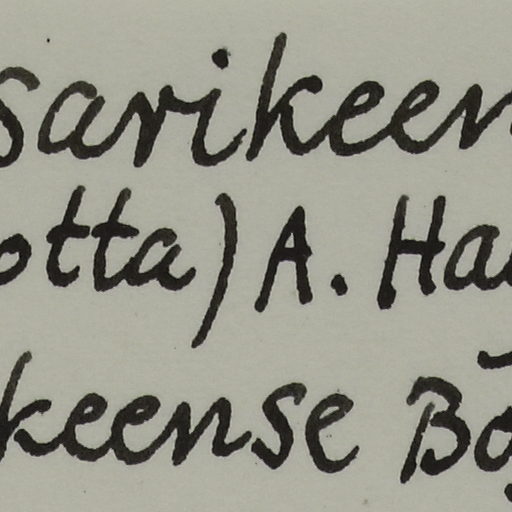 sarikeen
otta) A. Ha
keense Bo